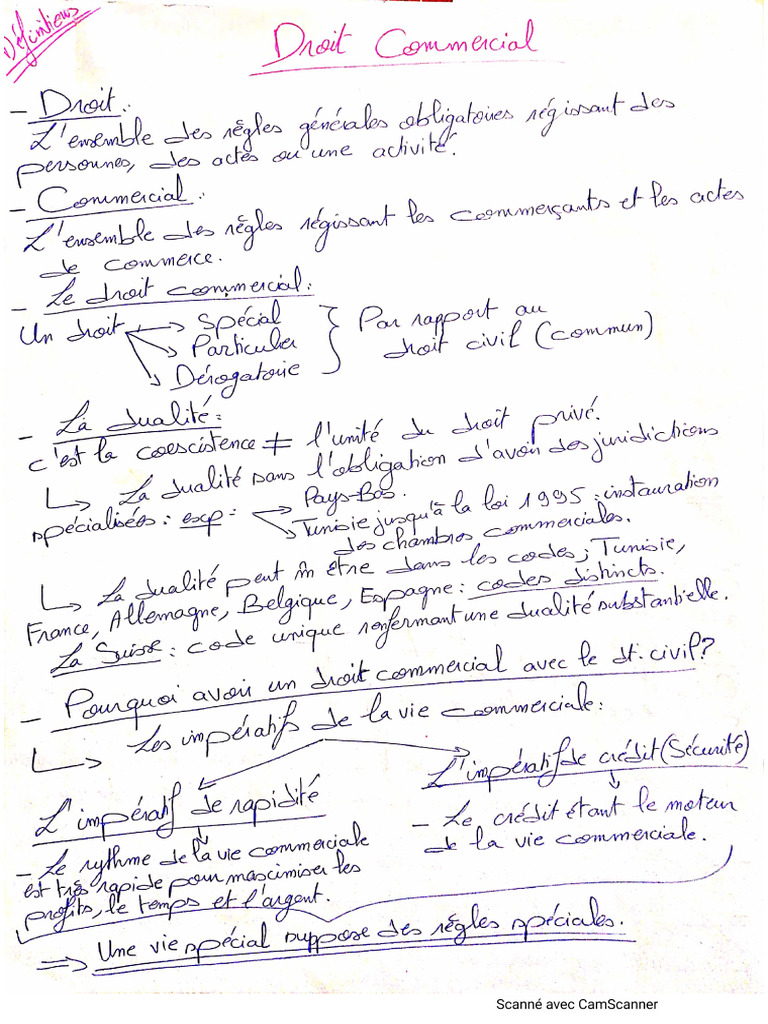 Définitions
Droit Commercial
- Droit :
L'ensemble des règles générales obligatoires régissant des
personnes, des actes ou une activité.
- Commercial :
L'ensemble des règles régissant les commerçants et les actes
de commerce.
- Le droit commercial :
Un droit → Spécial
→ Particulier
→ Dérogatoire
} Par rapport au
droit civil (commun)
- La dualité :
c'est la coexistence ≠ l'unité du droit privé.
↳ La dualité sans l'obligation d'avoir des juridictions
spécialisées : exp : → Pays-Bas.
→ Tunisie jusqu'à la loi 1995 : instauration
des chambres commerciales.
↳ La dualité peut m̂ être dans les codes ; Tunisie,
France, Allemagne, Belgique, Espagne : codes distincts.
La Suisse : code unique renfermant une dualité substantielle.
- Pourquoi avoir un droit commercial avec le dt. civil ?
↳ Les impératifs de la vie commerciale :
L'impératif de rapidité
- Le rythme de la vie commerciale
est très rapide pour maximiser les
profits, le temps et l'argent.
L'impératif de crédit (Sécurité)
- Le crédit étant le moteur
de la vie commerciale.
⇒ Une vie spécial suppose des règles spéciales.
Scanné avec CamScanner